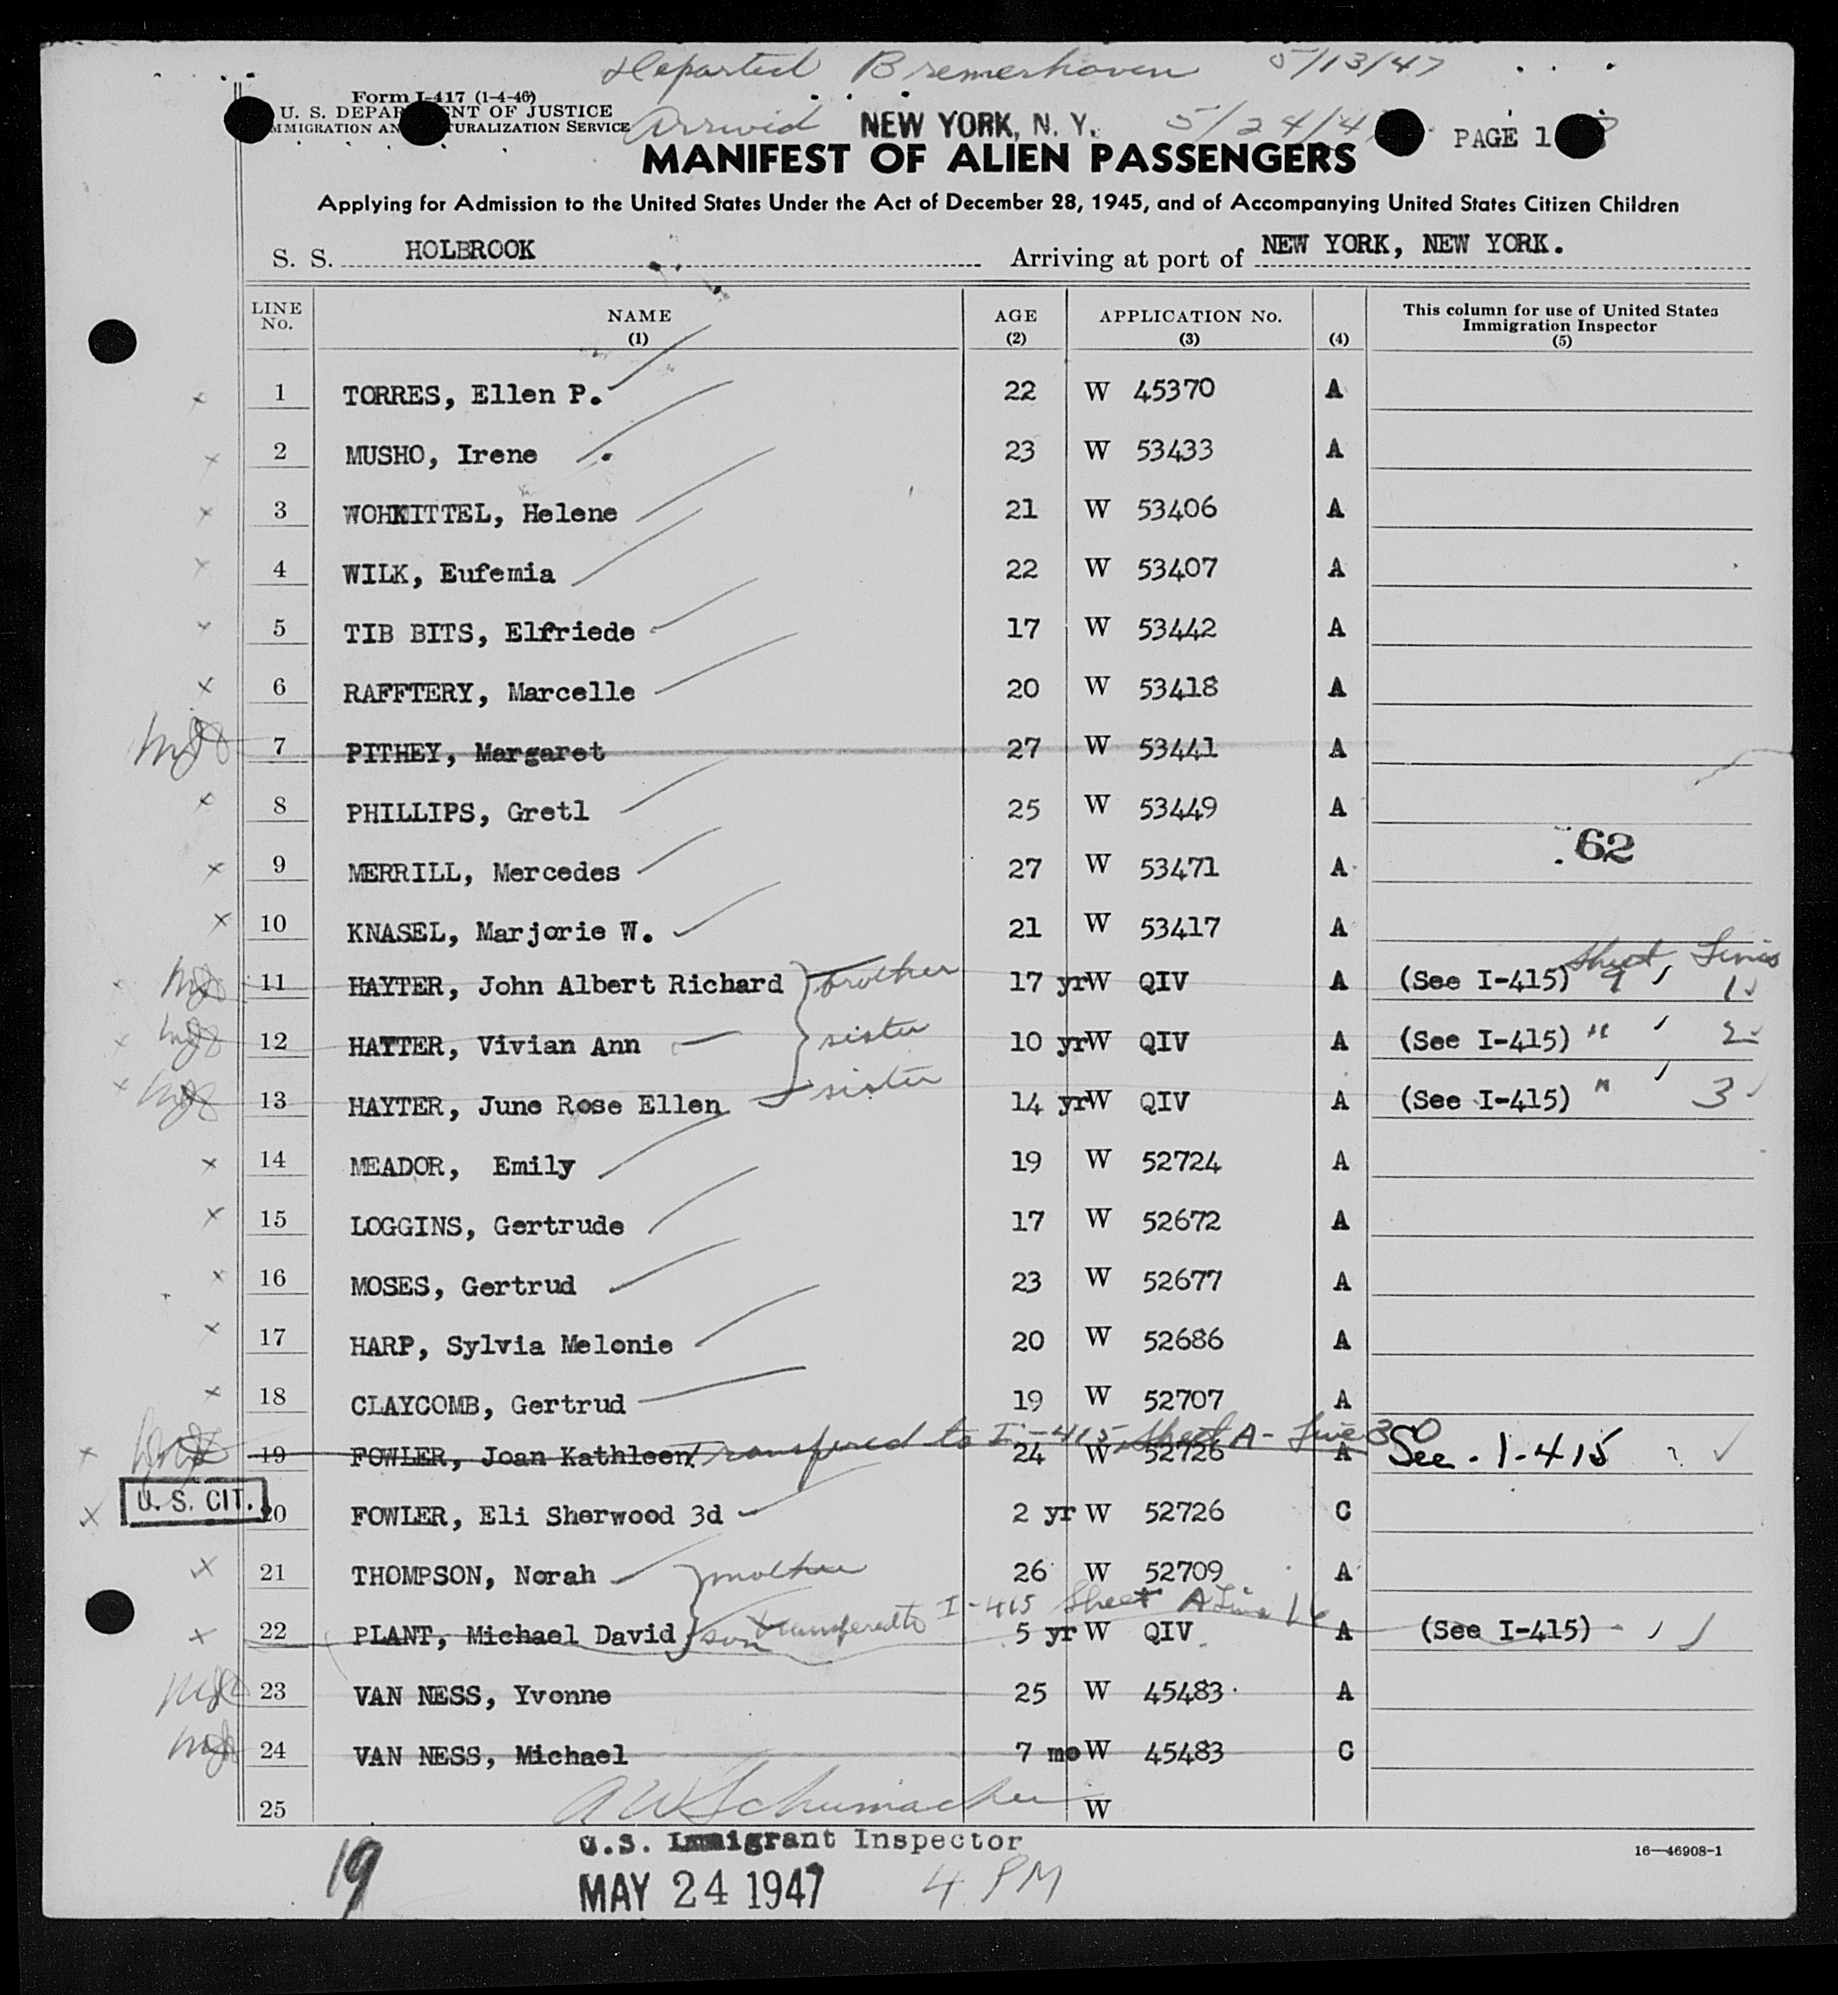 Departed Bremerhaven 5/13/47
Form I-417 (1-4-46)
U. S. DEPAR NT OF JUSTICE
MMIGRATION AN TURALIZATION SERVICE
Arrived NEW YORK, N. Y. 5/24/4
PAGE 1
MANIFEST OF ALIEN PASSENGERS
Applying for Admission to the United States Under the Act of December 28, 1945, and of Accompanying United States Citizen Children
S. S. HOLBROOK Arriving at port of NEW YORK, NEW YORK.
LINE No. NAME (1) AGE (2) APPLICATION No. (3) (4) This column for use of United States Immigration Inspector (5)
1 TORRES, Ellen P. 22 W 45370 A
2 MUSHO, Irene 23 W 53433 A
3 WOHKITTEL, Helene 21 W 53406 A
4 WILK, Eufemia 22 W 53407 A
5 TIB BITS, Elfriede 17 W 53442 A
6 RAFFTERY, Marcelle 20 W 53418 A
7 PITHEY, Margaret 27 W 53441 A
8 PHILLIPS, Gretl 25 W 53449 A
62
9 MERRILL, Mercedes 27 W 53471 A
10 KNASEL, Marjorie W. 21 W 53417 A
Sheet Lines
11 HAYTER, John Albert Richard brother 17 yr W QIV A (See I-415) 9 1
12 HAYTER, Vivian Ann sister 10 yr W QIV A (See I-415) " 2
13 HAYTER, June Rose Ellen sister 14 yr W QIV A (See I-415) " 3
14 MEADOR, Emily 19 W 52724 A
15 LOGGINS, Gertrude 17 W 52672 A
16 MOSES, Gertrud 23 W 52677 A
17 HARP, Sylvia Melonie 20 W 52686 A
18 CLAYCOMB, Gertrud 19 W 52707 A
19 FOWLER, Joan Kathleen Transfered to I-415 Sheet A - Line 30 24 W 52726 A See. I-415
U. S. CIT.
20 FOWLER, Eli Sherwood 3d 2 yr W 52726 C
21 THOMPSON, Norah mother 26 W 52709 A
22 PLANT, Michael David son transferedto I-415 Sheet A Line 16 5 yr W QIV A (See I-415)
23 VAN NESS, Yvonne 25 W 45483 A
24 VAN NESS, Michael 7 mo W 45483 C
25 W
A W Schumacher
U.S. Immigrant Inspector
16—46908-1
19
MAY 24 1947 4 PM